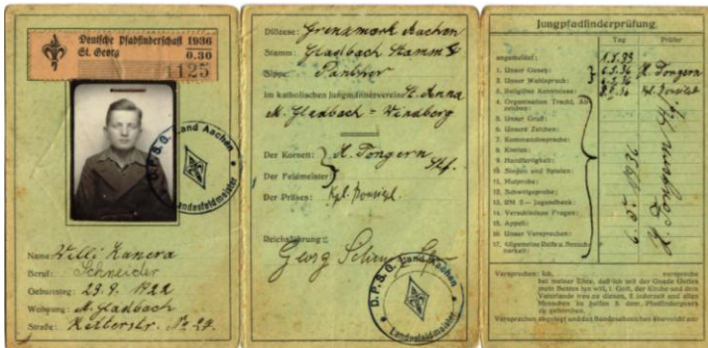 Deutsche Pfadfinderschaft 1936
St. Georg 0.30
4125
D.P.S.G. Land Aachen
Landesfeldmeister
Name: Willi Kanera
Beruf: Schneider
Geburtstag: 23.9.1922
Wohnung: M. Gladbach
Straße: Ritterstr. No 27.
Diözese: Grenzmark Aachen
Stamm: Gladbach Stamm
Sippe: Panther
im katholischen Jungmännervereine St. Anna
M. Gladbach - Windberg
Der Kornett: H. Tongern
Der Feldmeister
Der Präses: Kpl.
Reichsführung:
Georg
D.P.S.G. Land Aachen
Landesfeldmeister
Jungpfadfinderprüfung
Tag Prüfer
angemeldet: 1.5.33
1. Unser Gesetz: H. Tongern
2. Unser Wahlspruch:
3. Religiöse Kenntnisse: Kpl.
4. Organisation Tracht, Ab-
zeichen:
5. Unser Gruß:
6. Unsere Zeichen:
7. Kommandosprache:
8. Knoten:
9. Handfertigkeit:
10. Singen und Spielen:
11. Mutprobe:
12. Schweigeprobe:
14. Verschiedene Fragen:
15. Appell:
16. Unser Versprechen:
Versprechen: Ich, verspreche
bei meiner Ehre, daß ich mit der Gnade Gottes
mein Bestes tun will, 1. Gott, der Kirche und dem
Vaterlande treu zu dienen, 2. jederzeit und allen
Menschen zu helfen 3. dem Pfadfindergesetz
zu gehorchen.
Versprechen abgelegt und das Bundesabzeichen überreicht am: